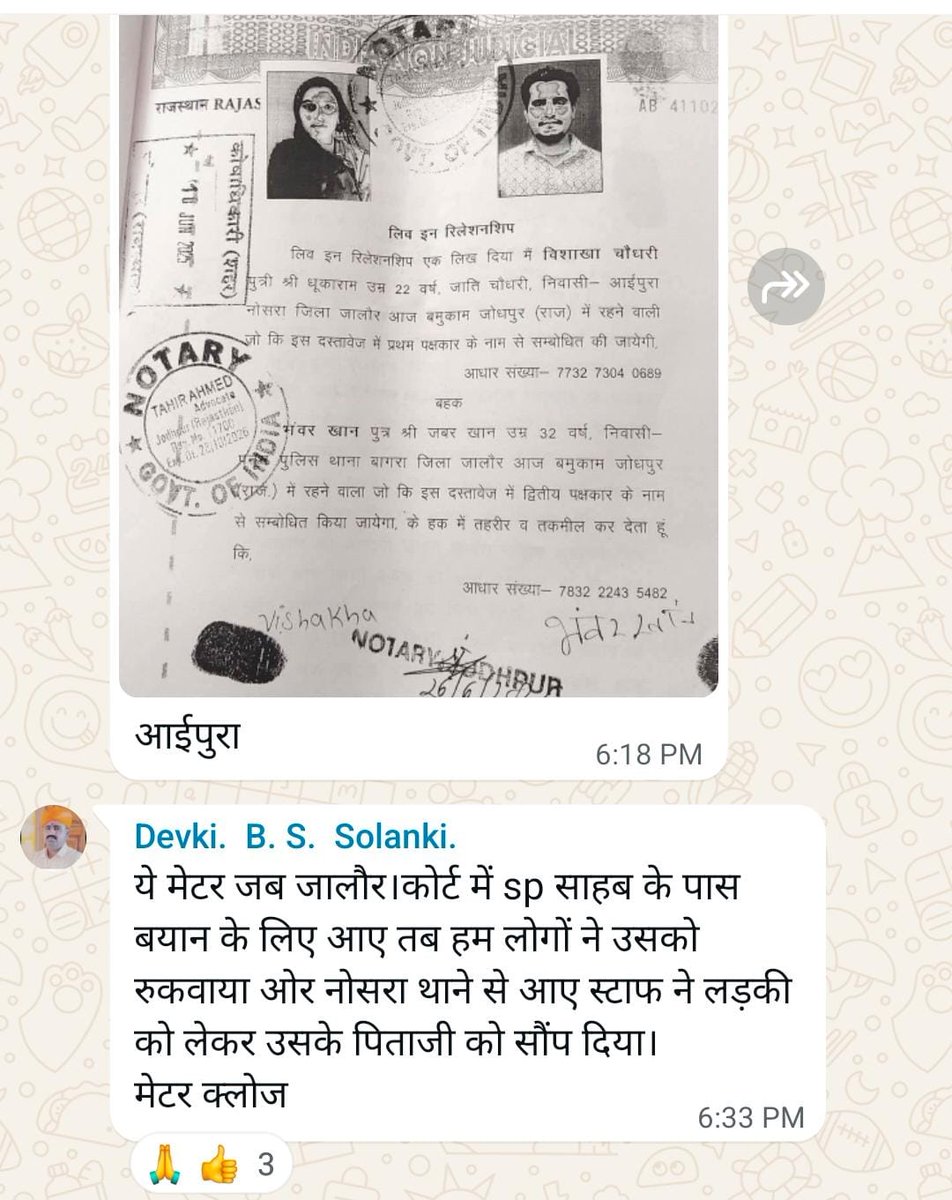 INDIA NON JUDICIAL
राजस्थान RAJAS
AB 41102
कोषाधिकारी (शहर)
लिव इन रिलेशनशिप
लिव इन रिलेशनशिप एक लिख दिया मैं विशाखा चौधरी
पुत्री श्री धूकाराम उम्र 22 वर्ष, जाति चौधरी, निवासी– आईपुरा
नोसरा जिला जालोर आज बमुकाम जोधपुर (राज) में रहने वाली
जो कि इस दस्तावेज में प्रथम पक्षकार के नाम से सम्बोधित की जायेगी,
आधार संख्या– 7732 7304 0689
बहक
भंवर खान पुत्र श्री जबर खान उम्र 32 वर्ष, निवासी–
पुलिस थाना बागरा जिला जालौर आज बमुकाम जोधपुर
(राज.) में रहने वाला जो कि इस दस्तावेज में द्वितीय पक्षकार के नाम
से सम्बोधित किया जायेगा, के हक में तहरीर व तकमील कर देता हूं
कि,
आधार संख्या– 7832 2243 5482
NOTARY
TAHIR AHMED
Advocate
Jodhpur (Rajasthan)
GOVT. OF INDIA
Vishakha
भंवर खान
NOTARY JODHPUR
आईपुरा
6:18 PM
Devki. B. S. Solanki.
ये मेटर जब जालौर।कोर्ट में sp साहब के पास
बयान के लिए आए तब हम लोगों ने उसको
रुकवाया ओर नोसरा थाने से आए स्टाफ ने लड़की
को लेकर उसके पिताजी को सौंप दिया।
मेटर क्लोज
6:33 PM
3